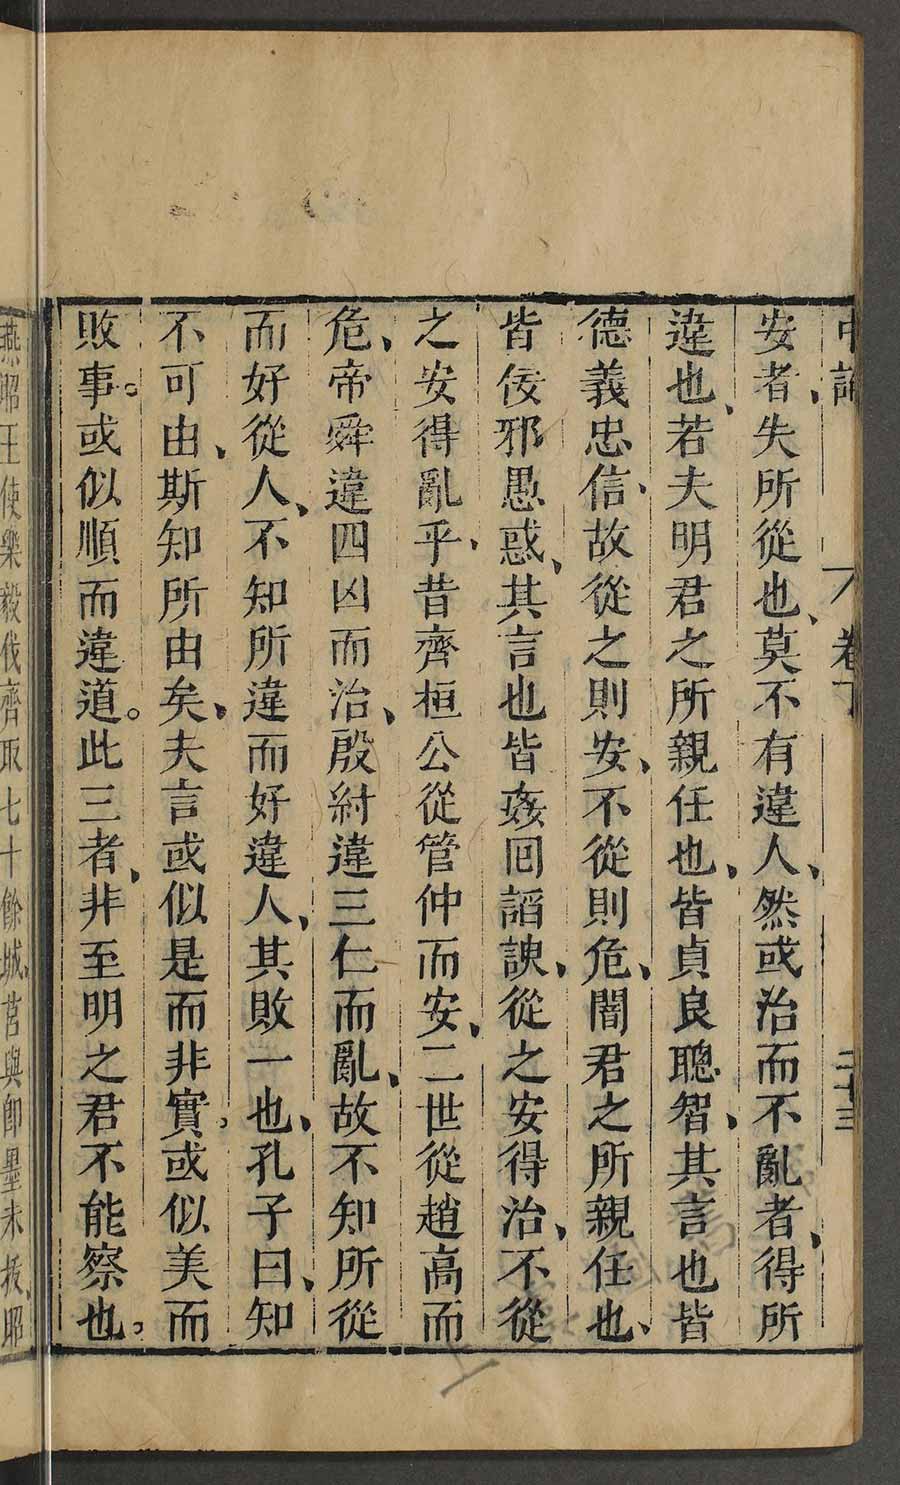 中論 卷下 二十三
安者、失所從也、莫不有違人、然或治而不亂者、得所
違也、若夫明君之所親任也、皆貞良聰智、其言也皆
德義忠信、故從之則安、不從則危、闇君之所親任也、
皆佞邪愚惑、其言也皆姦回謟諛、從之安得治、不從
之安得亂乎、昔齊桓公從管仲而安、二世從趙高而
危、帝舜違四凶而治、殷紂違三仁而亂、故不知所從
而好從人、不知所違而好違人、其敗一也、孔子曰、知
不可由、斯知所由矣、夫言或似是而非實、或似美而
敗事。或似順而違道。此三者、非至明之君不能察也、
燕昭王使樂毅伐齊取七十餘城、莒與卽墨未拔、昭